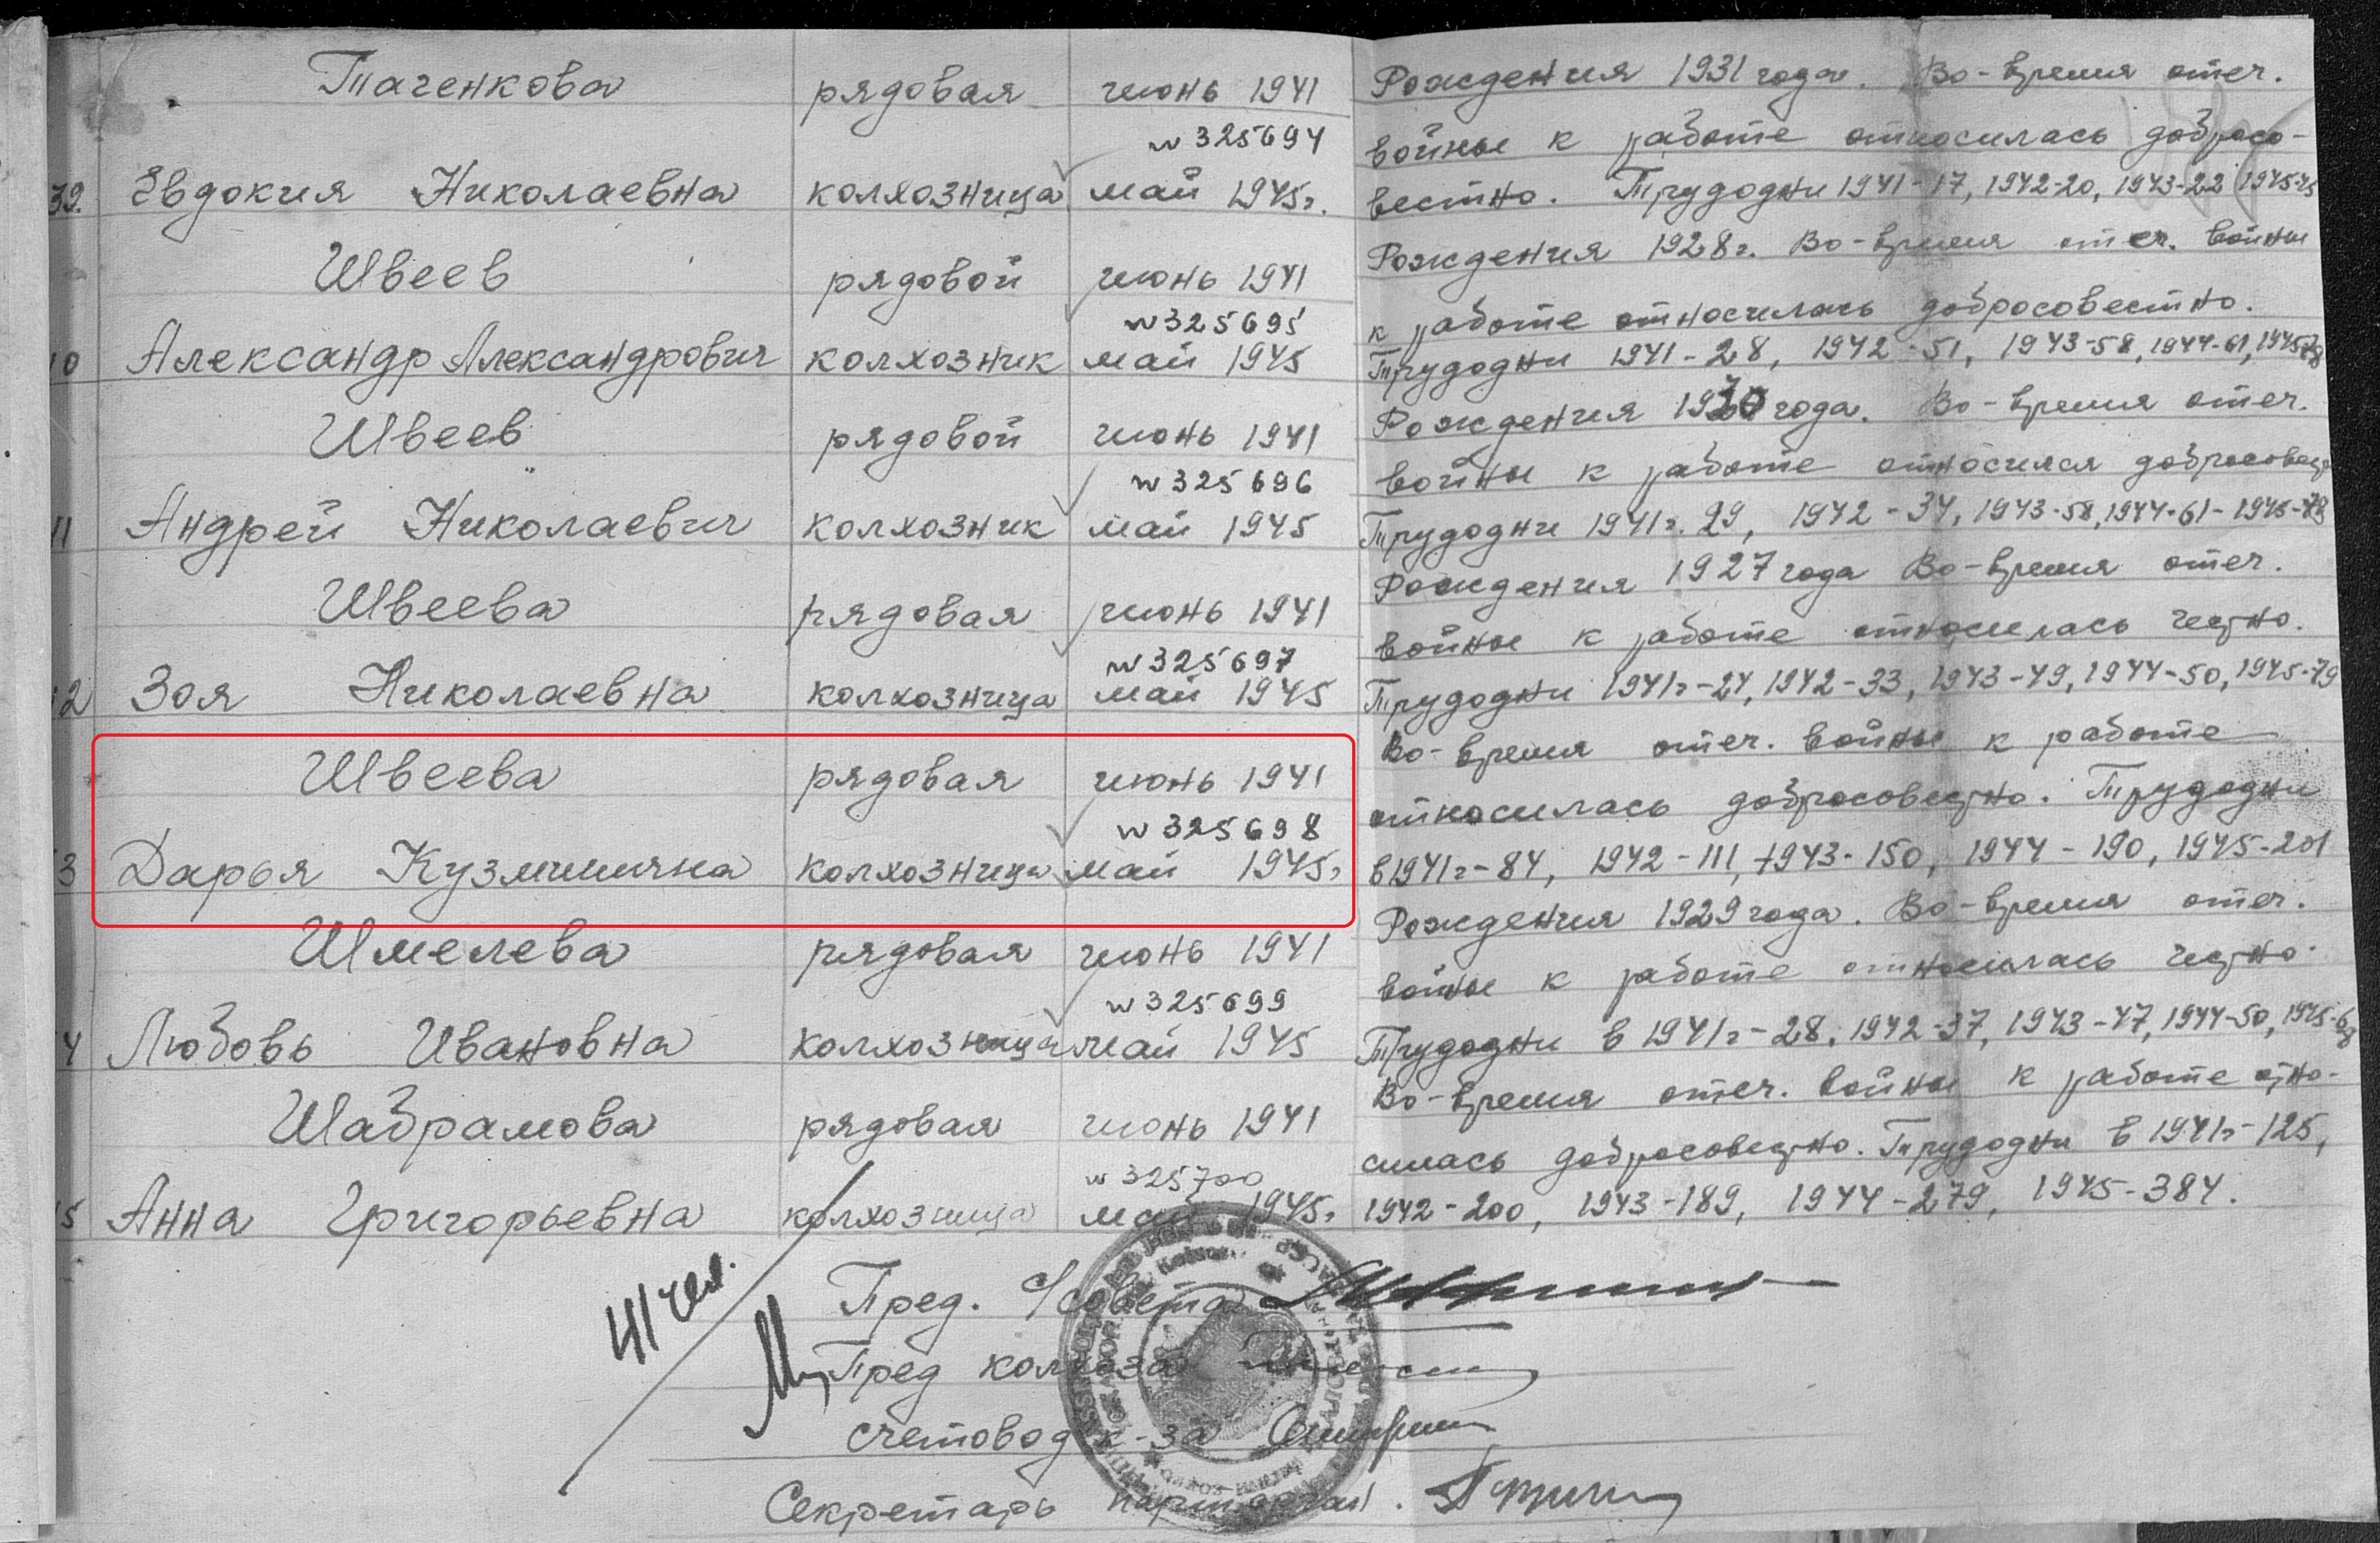 Таченкова рядовая июнь 1941 Рождения 1931 года. Во-время отеч.
w 325694 войны к работе относилась добросо-
39. Евдокия Николаевна колхозница май 1945г. вестно. Трудодни 1941-17, 1942-20, 1943-22 1945-45
Швеев рядовой июнь 1941 Рождения 1928г. Во-время отеч. войны
w 325695 к работе относилась добросовестно.
10 Александр Александрович колхозник май 1945 Трудодни 1941-28, 1942-51, 1943-58, 1944-61, 1945-78
Швеев рядовой июнь 1941 Рождения 1930 года. Во-время отеч.
w 325696 войны к работе относился добросовест
11 Андрей Николаевич колхозник май 1945 Трудодни 1941г. 29, 1942-34, 1943-58, 1944-61-1945-78
Швеева рядовая июнь 1941 Рождения 1927 года Во-время отеч.
w 325697 войны к работе относилась честно.
12 Зоя Николаевна колхозница май 1945 Трудодни 1941г-24, 1942-33, 1943-49, 1944-50, 1945-79
Швеева рядовая июнь 1941 Во-время отеч. войны к работе
w 325698 относилась добросовестно. Трудодни
3 Дарья Кузминична колхозница май 1945г в 1941г-84, 1942-111, 1943-150, 1944-190, 1945-201
Шмелева рядовая июнь 1941 Рождения 1929 года. Во-время отеч.
w 325699 войны к работе относилась честно.
4 Любовь Ивановна колхозница май 1945 Трудодни в 1941г-28, 1942-37, 1943-47, 1944-50, 1945-68
Шабрамова рядовая июнь 1941 Во-время отеч. войны к работе отно-
w 325700 силась добросовестно. Трудодни в 1941г-125,
5 Анна Григорьевна колхозница май 1945г 1942-200, 1943-189, 1944-279, 1945-384.
41 чел. Пред. с/совета
Пред колхоза
счетовод к-за
Секретарь парторган.